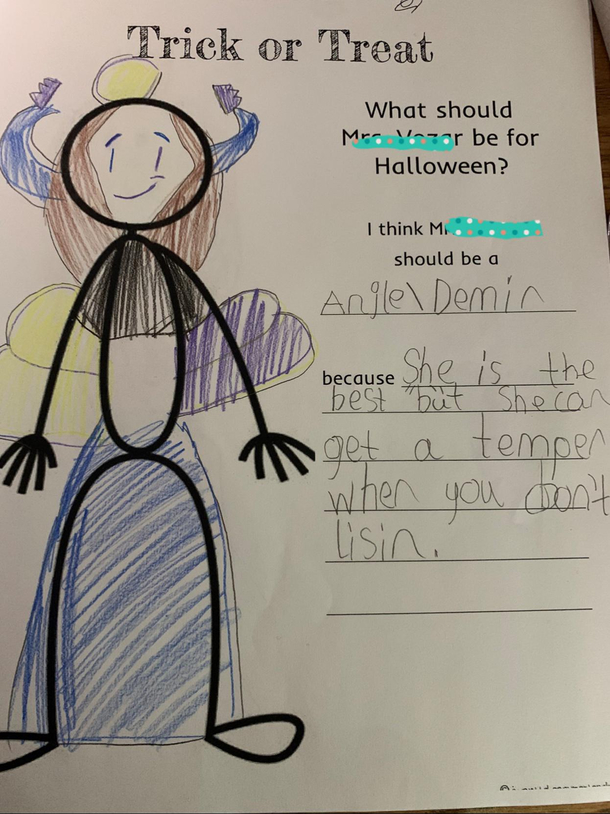 Trick or Treat
What should
be for
Halloween?
I think
should be a
Angle\Demin
because She is the
best but She can
get a temper
when you don't
lisin.